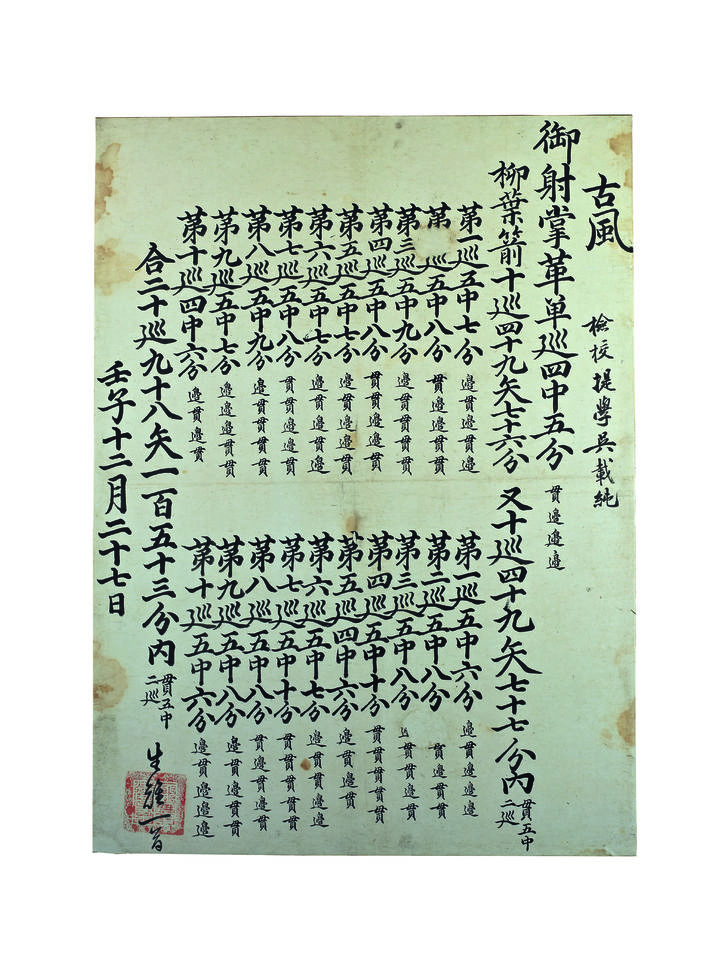 古風 檢校提學吳載純
御射掌革單巡四中五分 貫邊邊邊
柳葉箭十巡四十九矢七十六分
第一巡五中七分 邊貫邊貫邊
第 巡五中八分 貫貫邊邊貫
第三巡五中九分 邊貫貫貫貫
第四巡五中八分 貫貫邊邊貫
第五巡五中七分 邊邊貫貫邊
第六巡五中七分 邊貫邊貫邊
第七巡五中八分 貫邊邊貫貫
第八巡五中九分 邊貫貫貫貫
第九巡五中七分 邊邊邊貫貫
第十巡四中六分 邊貫邊貫
又十巡四十九矢七十七分內 貫五中二巡
第一巡五中六分 邊貫邊邊邊
第二巡五中八分 邊貫邊貫貫
第三巡五中八分 邊貫邊貫貫
第四巡五中十分 貫貫貫貫貫
第五巡四中六分 邊貫邊貫
第六巡五中七分 邊邊貫貫邊
第七巡五中十分 貫貫貫貫貫
第八巡五中八分 貫邊邊貫貫
第九巡五中八分 邊貫邊貫貫
第十巡五中六分 邊貫邊邊邊
合二十巡九十八矢一百五十三分內 貫五中二巡
壬子十二月二十七日
生雉一首